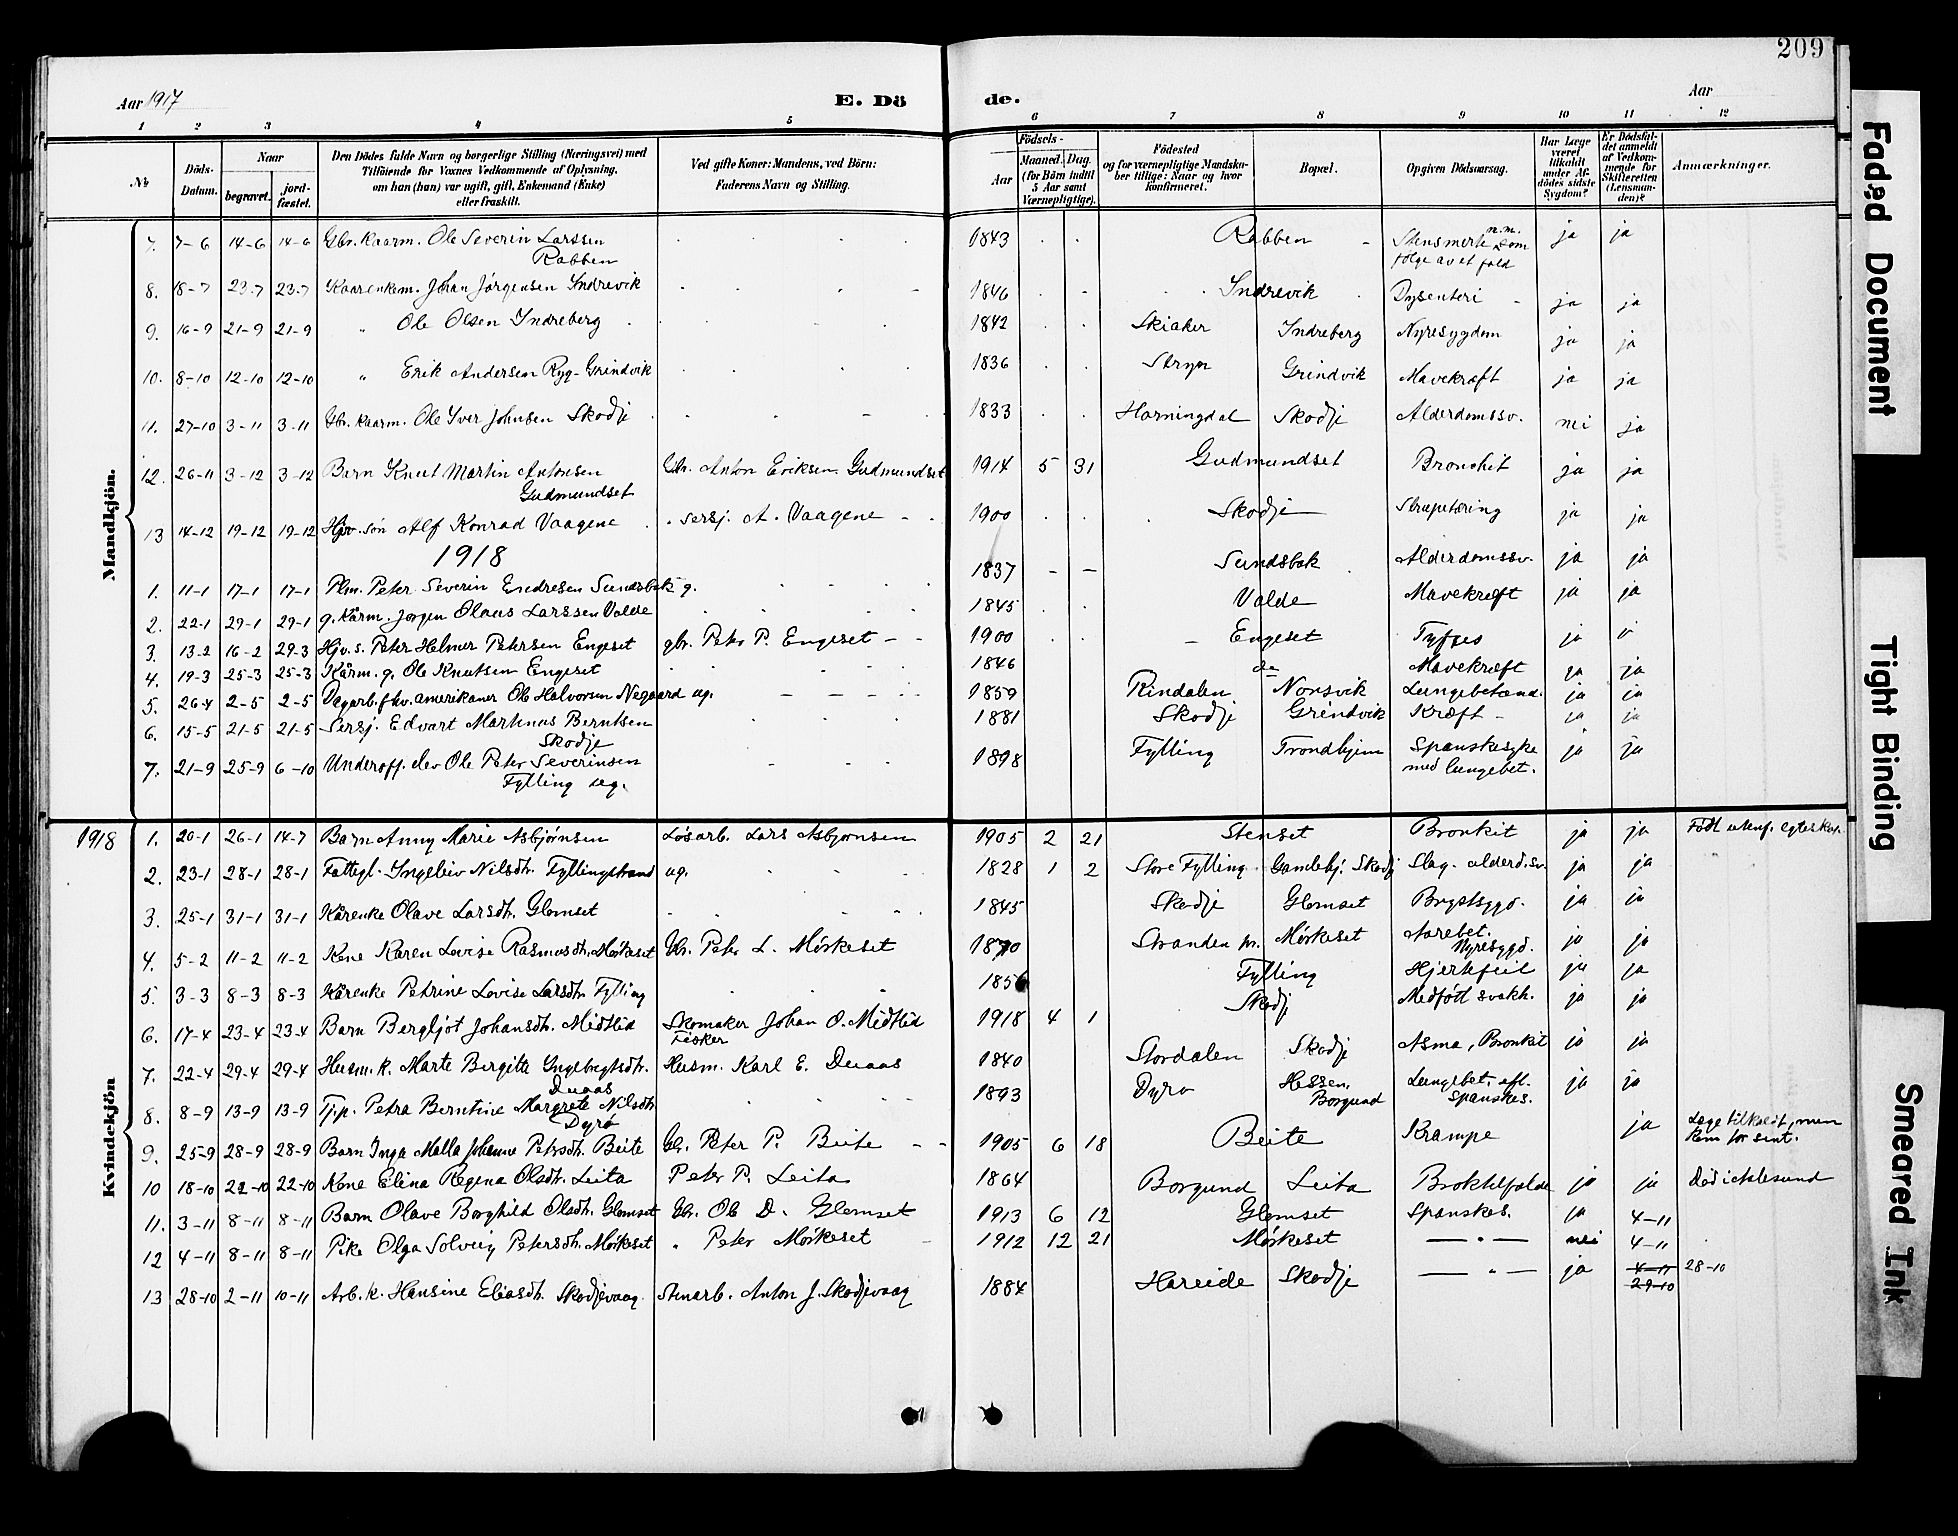 209
Aar 1917 E. Dö de. Aar
1 2 3 4 5 6 7 8 9 10 11 12
№ Döds-Datum. Naar begravet. jord-fæstet. Den Dödes fulde Navn og borgerlige Stilling (Næringsvei) med Tilföiende for Voxnes Vedkommende af Oplysning, om han (hun) var ugift, gift, Enkemand (Enke) eller fraskilt. Ved gifte Koner: Mandens, ved Börn: Faderens Navn og Stilling. Födsels- Aar Maaned. Dag. (for Börn indtil 5 Aar samt Værnepligtige). Födested og for værnepligtige Mandskaber tillige: Naar og hvor konfirmeret. Bopæl. Opgiven Dödsaarsag. Har Læge været tilkaldt under Afdödes sidste Sygdom? Er Dödsfaldet anmeldt af Vedkommende for Skifteretten (Lensmanden)? Anmærkninger.
Mandkjön.
7. 7-6 14-6 14-6 Gbr. kaarm. Ole Severin Larssen Rabben 1843 Rabben Stensmerte m.m. som følge av et fald ja ja
8. 18-7 23-7 23-7 Kaarenkem. Johan Jørgensen Indrevik 1846 Indrevik Dysenteri ja ja
9. 16-9 21-9 21-9 " Ole Olsen Indreberg 1842 Skiaker Indreberg Nyresygdom ja ja
10. 8-10 12-10 12-10 " Erik Andersen Ryg-Grindvik 1836 Stryn Grindvik Mavekræft ja ja
11. 27-10 3-11 3-11 Gbr. kaarm. Ole Iver Johnsen Skodje 1833 Horningdal Skodje Alderdomssv. nei ja
12. 26-11 3-12 3-12 Barn Knut Martin Antonsen Gudmundset Gbr. Anton Eriksen Gudmundset 1914 5 31 Gudmundset Bronchit ja ja
13 14-12 19-12 19-12 Hjv. søn Alf Konrad Vaagene sersj. A. Vaagene 1900 Skodje Strupetæring ja ja
1918
1. 11-1 17-1 17-1 Plm. Peter Severin Endresen Sundsbak g. 1837 - - Sundsbak Alderdomssv. ja ja
2. 22-1 29-1 29-1 g. Kårm. Jørgen Olaus Larssen Valde 1845 Valde Mavekræft ja ja
3. 13-2 16-2 29-3 Hjv. s. Peter Helmer Petersen Engeset gbr. Peter P. Engeset 1900 Engeset Tyffus ja
4. 19-3 25-3 25-3 Kårm. g. Ole Knutsen Engeset 1846 do Mavekræft ja ja
5. 26-4 2-5 2-5 Dagarb. fhv. amerikaner Ole Halvorsen Negaard ug. 1859 Rindalen Norsvik Lungebetænd. ja ja
6. 15-5 21-5 21-5 Sersj. Edvart Martinus Berntsen Skodje 1881 Skodje Grindvik Kræft ja ja
7. 21-9 25-9 6-10 Underoff. elev Ole Peter Severinsen Fylling ug. 1898 Fylling Trondhjem Spanskesyke med lungebet. ja ja
Kvindekjön
1918 1. 20-1 26-1 14-7 Barn Anny Marie Asbjørnsen Løsarb. Lars Asbjørnsen 1905 2 21 Stenset Bronkit ja ja Født utenf. egteskap.
2. 23-1 28-1 28-1 Fattigl. Ingeleiv Nilsdtr. Fyllingstrand ug. 1828 1 2 Store Fylling Gamlehj. Skodj Slag-alderd.sv. ja ja
3. 25-1 31-1 31-1 Kårenke Olave Larsdtr. Glomset 1845 Skodje Glomset Brystsygd. ja ja
4. 5-2 11-2 11-2 Kone Karen Lovise Rasmusdtr. Mørkeset Gbr. Peter L. Mørkeset 1870 Stranden pr. Mørkeset Aarebet. Nyresygd. ja ja
5. 3-3 8-3 8-3 Kårenke Petrine Lovise Larsdtr. Fylling 1856 Fylling Hjertefeil ja ja
6. 17-4 23-4 23-4 Barn Bergljot Johansdtr. Midtlid Skomaker Johan O. Midtlid Fisker 1918 4 1 Skodj Medfött svakh. ja ja
7. 22-4 29-4 29-4 Husm. k. Marte Birgitte Ingebrigtsdtr. Duaas Husm. Karl E. Duaas 1840 Stordalen Skodje Asma, Bronkit ja ja
8. 8-9 13-9 13-9 Tj.p. Petra Berntine Margrete Nilsdtr. Dyrø 1893 Dyrø Hessen, Borgund Lungebet. eft. Spanskes. ja ja
9. 25-9 28-9 28-9 Barn Inga Malla Johanne Petersdtr. Beite Gbr. Peter P. Beite 1905 6 18 Beite Krampe ja Læge tilkaldt, men kom for sent.
10 18-10 22-10 22-10 Kone Elina Regina Olsdtr. Leita Peter P. Leita 1864 Borgund Leita Broktilfælde ja ja Död i Aalesund
11. 3-11 8-11 8-11 Barn Olave Borghild Olsdtr. Glomset Gbr. Ole D. Glomset 1913 6 12 Glomset Spanskes. ja 4-11
12 4-11 8-11 8-11 Pike Olga Solveig Petersdtr. Mørkeset " Peter Mørkeset 1912 12 21 Mørkeset — " — nei 4-11
13 28-10 2-11 10-11 Arb. k. Hansine Eliasdtr. Skodjevaag Stenarb. Anton J. Skodjevaag 1884 Hareide Skodje — " — ja 4-11 29-10 28-10
Faded Document
Tight Binding
Smeared Ink